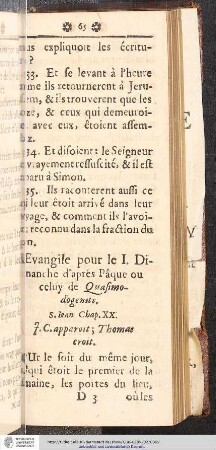 65
us expliquoit les écritu-
?
33. Et se levant à l'heure
me ils retournerent à Jeru-
em, & ils trouverent que les
ze, & ceux qui demeuroi-
avec eux, étoient assem-
z.
34. Et disoient: le Seigneur
vrayement ressuscité, & il est
paru à Simon.
35. Ils raconterent aussi ce
i leur étoit arrivé dans leur
yage, & comment ils l'avoi-
reconnu dans la fraction du
n.
Evangile pour le I. Di-
manche d'après Pâque ou
celuy de Quasimo-
dogenitis.
S. Iean Chap. XX.
J. C. apparoit; Thomas
croit.
Ur le soir du même jour,
qui étoit le premier de la
maine, les portes du lieu,
D 3 où les